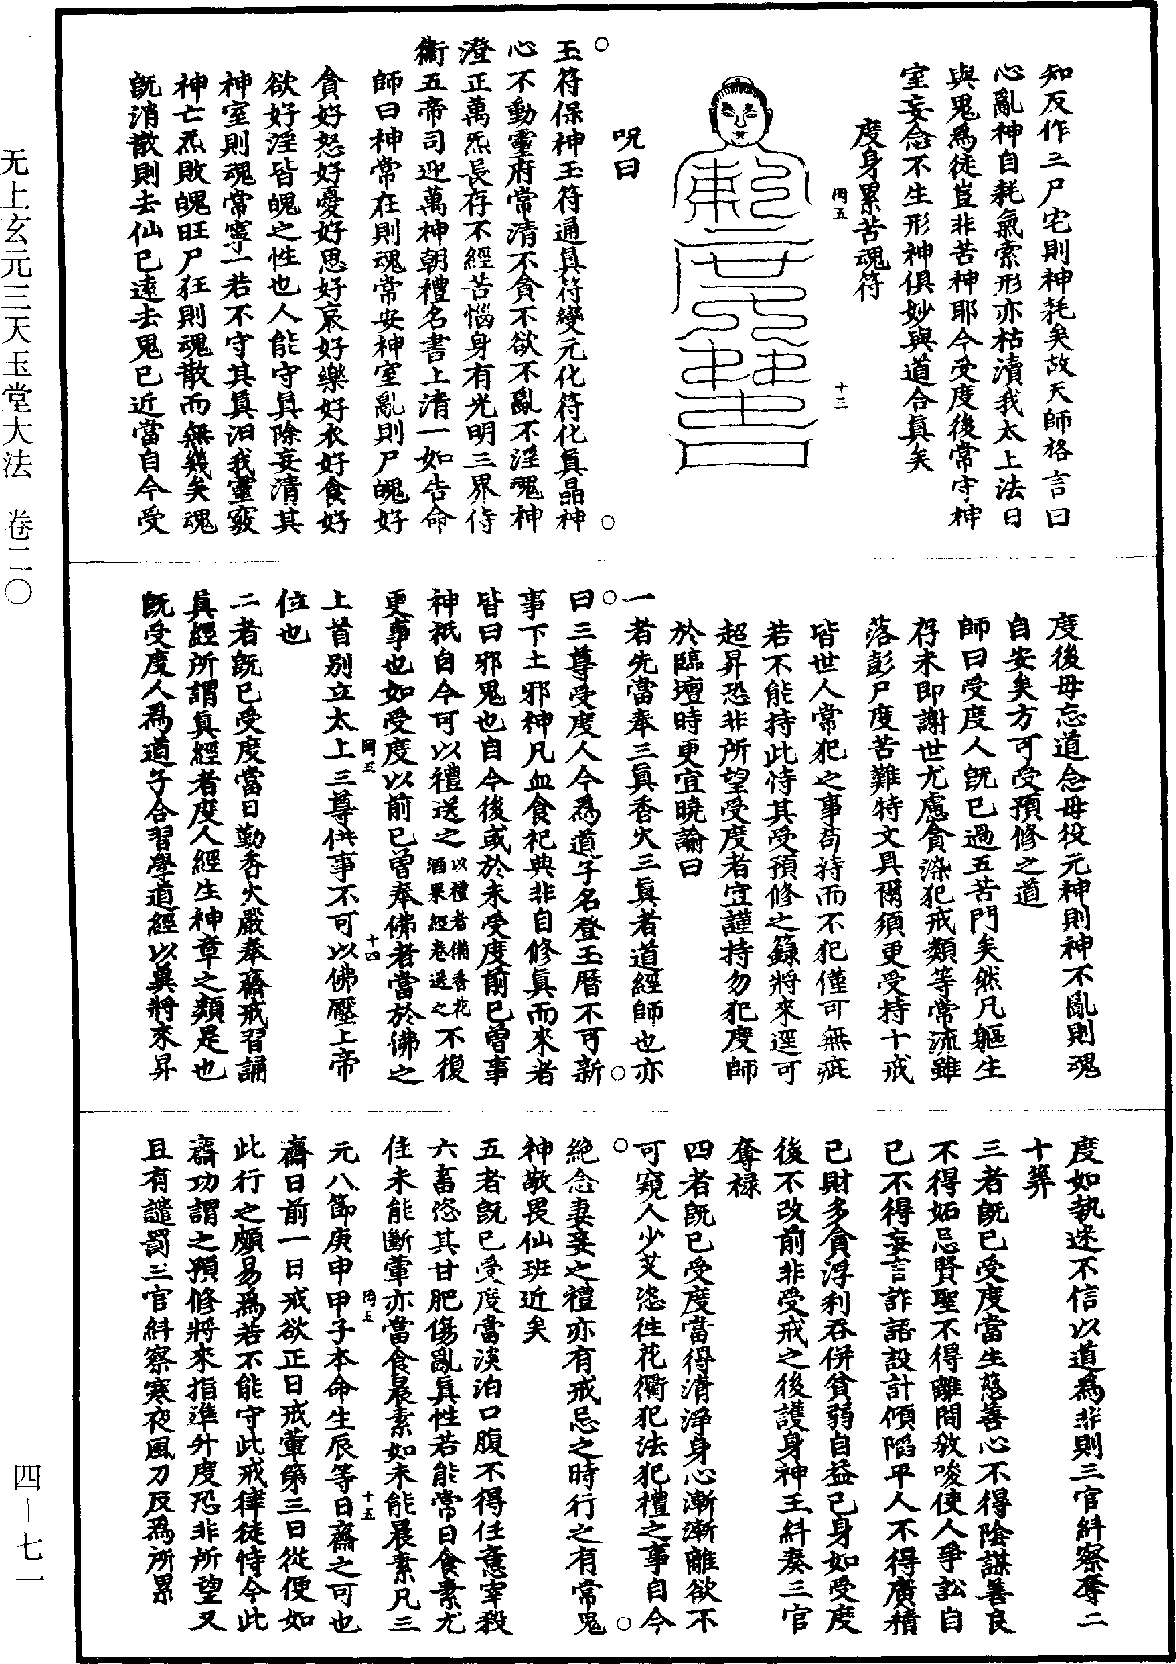 知反作三尸宅則神耗矣故天師格言曰
心亂神自耗氣索形亦枯漬我太上法日
與鬼爲徒豈非苦神耶今受度後常守神
室妄念不生形神俱妙與道合真矣
度身累苦魂符
罔五
十三
呪曰
玉符保神玉符通真符變元化符化真晶神
心不動靈府常清不貪不欲不亂不淫魂神
澄正萬炁長存不經苦惱身有光明三界侍
衛五帝司迎萬神朝禮名書上清一如告命
師曰神常在則魂常安神室亂則尸魄好
貪好怒好憂好思好哀好樂好衣好食好
欲好淫皆魄之性也人能守真除妄清其
神室則魂常寧一若不守其真汨我靈竅
神亡炁敗魄旺尸狂則魂散而無幾矣魂
旣消散則去仙已遠去鬼已近當自今受
度後毋忘道念毋役元神則神不亂則魂
自安矣方可受預修之道
師曰受度人旣已過五苦門矣然凡軀生
存未即謝世尤慮貪染犯戒類等常流雖
落彭尸度苦難特文具爾須更受持十戒
皆世人常犯之事苟持而不犯僅可無疵
若不能持此恃其受預修之籙將來逕可
超昇恐非所望受度者宜謹持勿犯度師
於臨壇時更宜曉諭曰
一者先當奉三真香火三真者道經師也亦
曰三尊受度人今爲道子名登玉曆不可新
事下土邪神凡血食祀典非自修真而來者
皆曰邪鬼也自今後或於未受度前已曾事
神祇自今可以禮送之以禮者備香花酒果經卷送之不復
更事也如受度以前已曾奉佛者當於佛之
上首别立太上三尊供事不可以佛壓上帝
罔五
十四
位也
二者旣已受度當日勤香火嚴奉齋戒習誦
真經所謂真經者度人經生神章之類是也
旣受度人爲道子合習學道經以冀將來昇
度如執迷不信以道爲非則三官糾察奪二
十筭
三者旣已受度當生慈善心不得陰謀善良
不得妬忌賢聖不得離間教唆使人爭訟自
已不得妄言詐語設計傾陷平人不得廣積
己財多貪浮利吞併貧弱自益己身如受度
後不改前非受戒之後護身神王糾奏三官
奪祿
四者旣已受度當得清淨身心漸漸離欲不
可窺人少艾恣徃花衢犯法犯禮之事自今
絶念妻妾之禮亦有戒忌之時行之有常鬼
神敬畏仙班近矣
五者旣已受度當淡泊口腹不得任意宰殺
六畜恣其甘肥傷亂真性若能常日食素尤
佳未能斷葷亦當食晨素如未能晨素凡三
元八節庚申甲子本命生辰等日齋之可也
罔五
十五
齋日前一日戒欲正日戒葷第三日從便如
此行之頗易爲若不能守此戒律徒恃今此
齋功謂之預修將來指準升度恐非所望又
且有譴罰三官糾察寒夜風刀反爲所累
无上玄元三天玉堂大法 卷二〇
四—七一